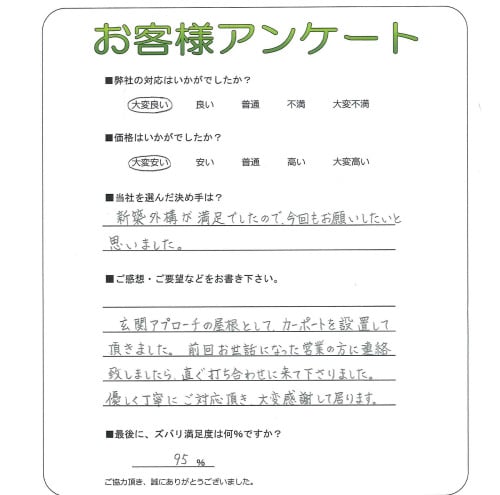 お客様アンケート
■弊社の対応はいかがでしたか？
大変良い 良い 普通 不満 大変不満
■価格はいかがでしたか？
大変安い 安い 普通 高い 大変高い
■当社を選んだ決め手は？
新築外構が満足でしたので、今回もお願いしたいと
思いました。
■ご感想・ご要望などをお書き下さい。
玄関アプローチの屋根として、カーポートを設置して
頂きました。 前回お世話になった営業の方に連絡
致しましたら、直ぐ打ち合わせに来て下さりました。
優しく丁寧にご対応頂き、大変感謝して居ります。
■最後に、ズバリ満足度は何％ですか？
95 ％
ご協力頂き、誠にありがとうございました。